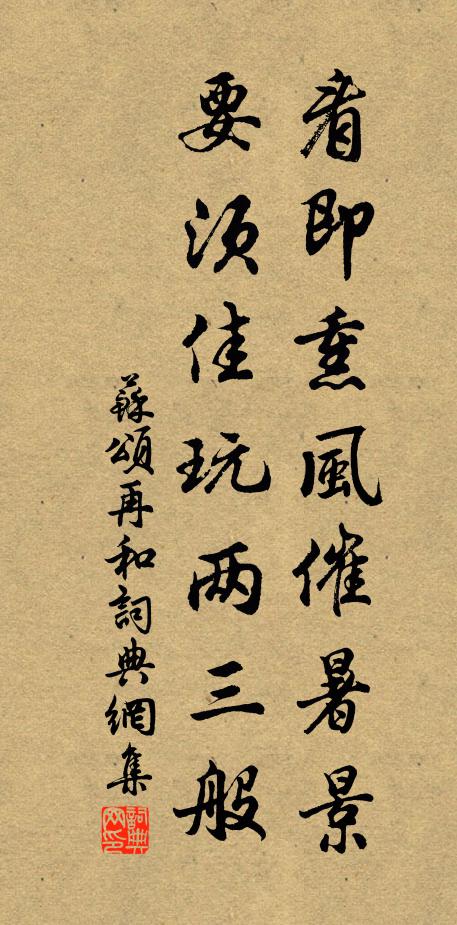 看即熏風催暑景
要須佳玩两三般
蘇頌再和詞典網集
詞典网印